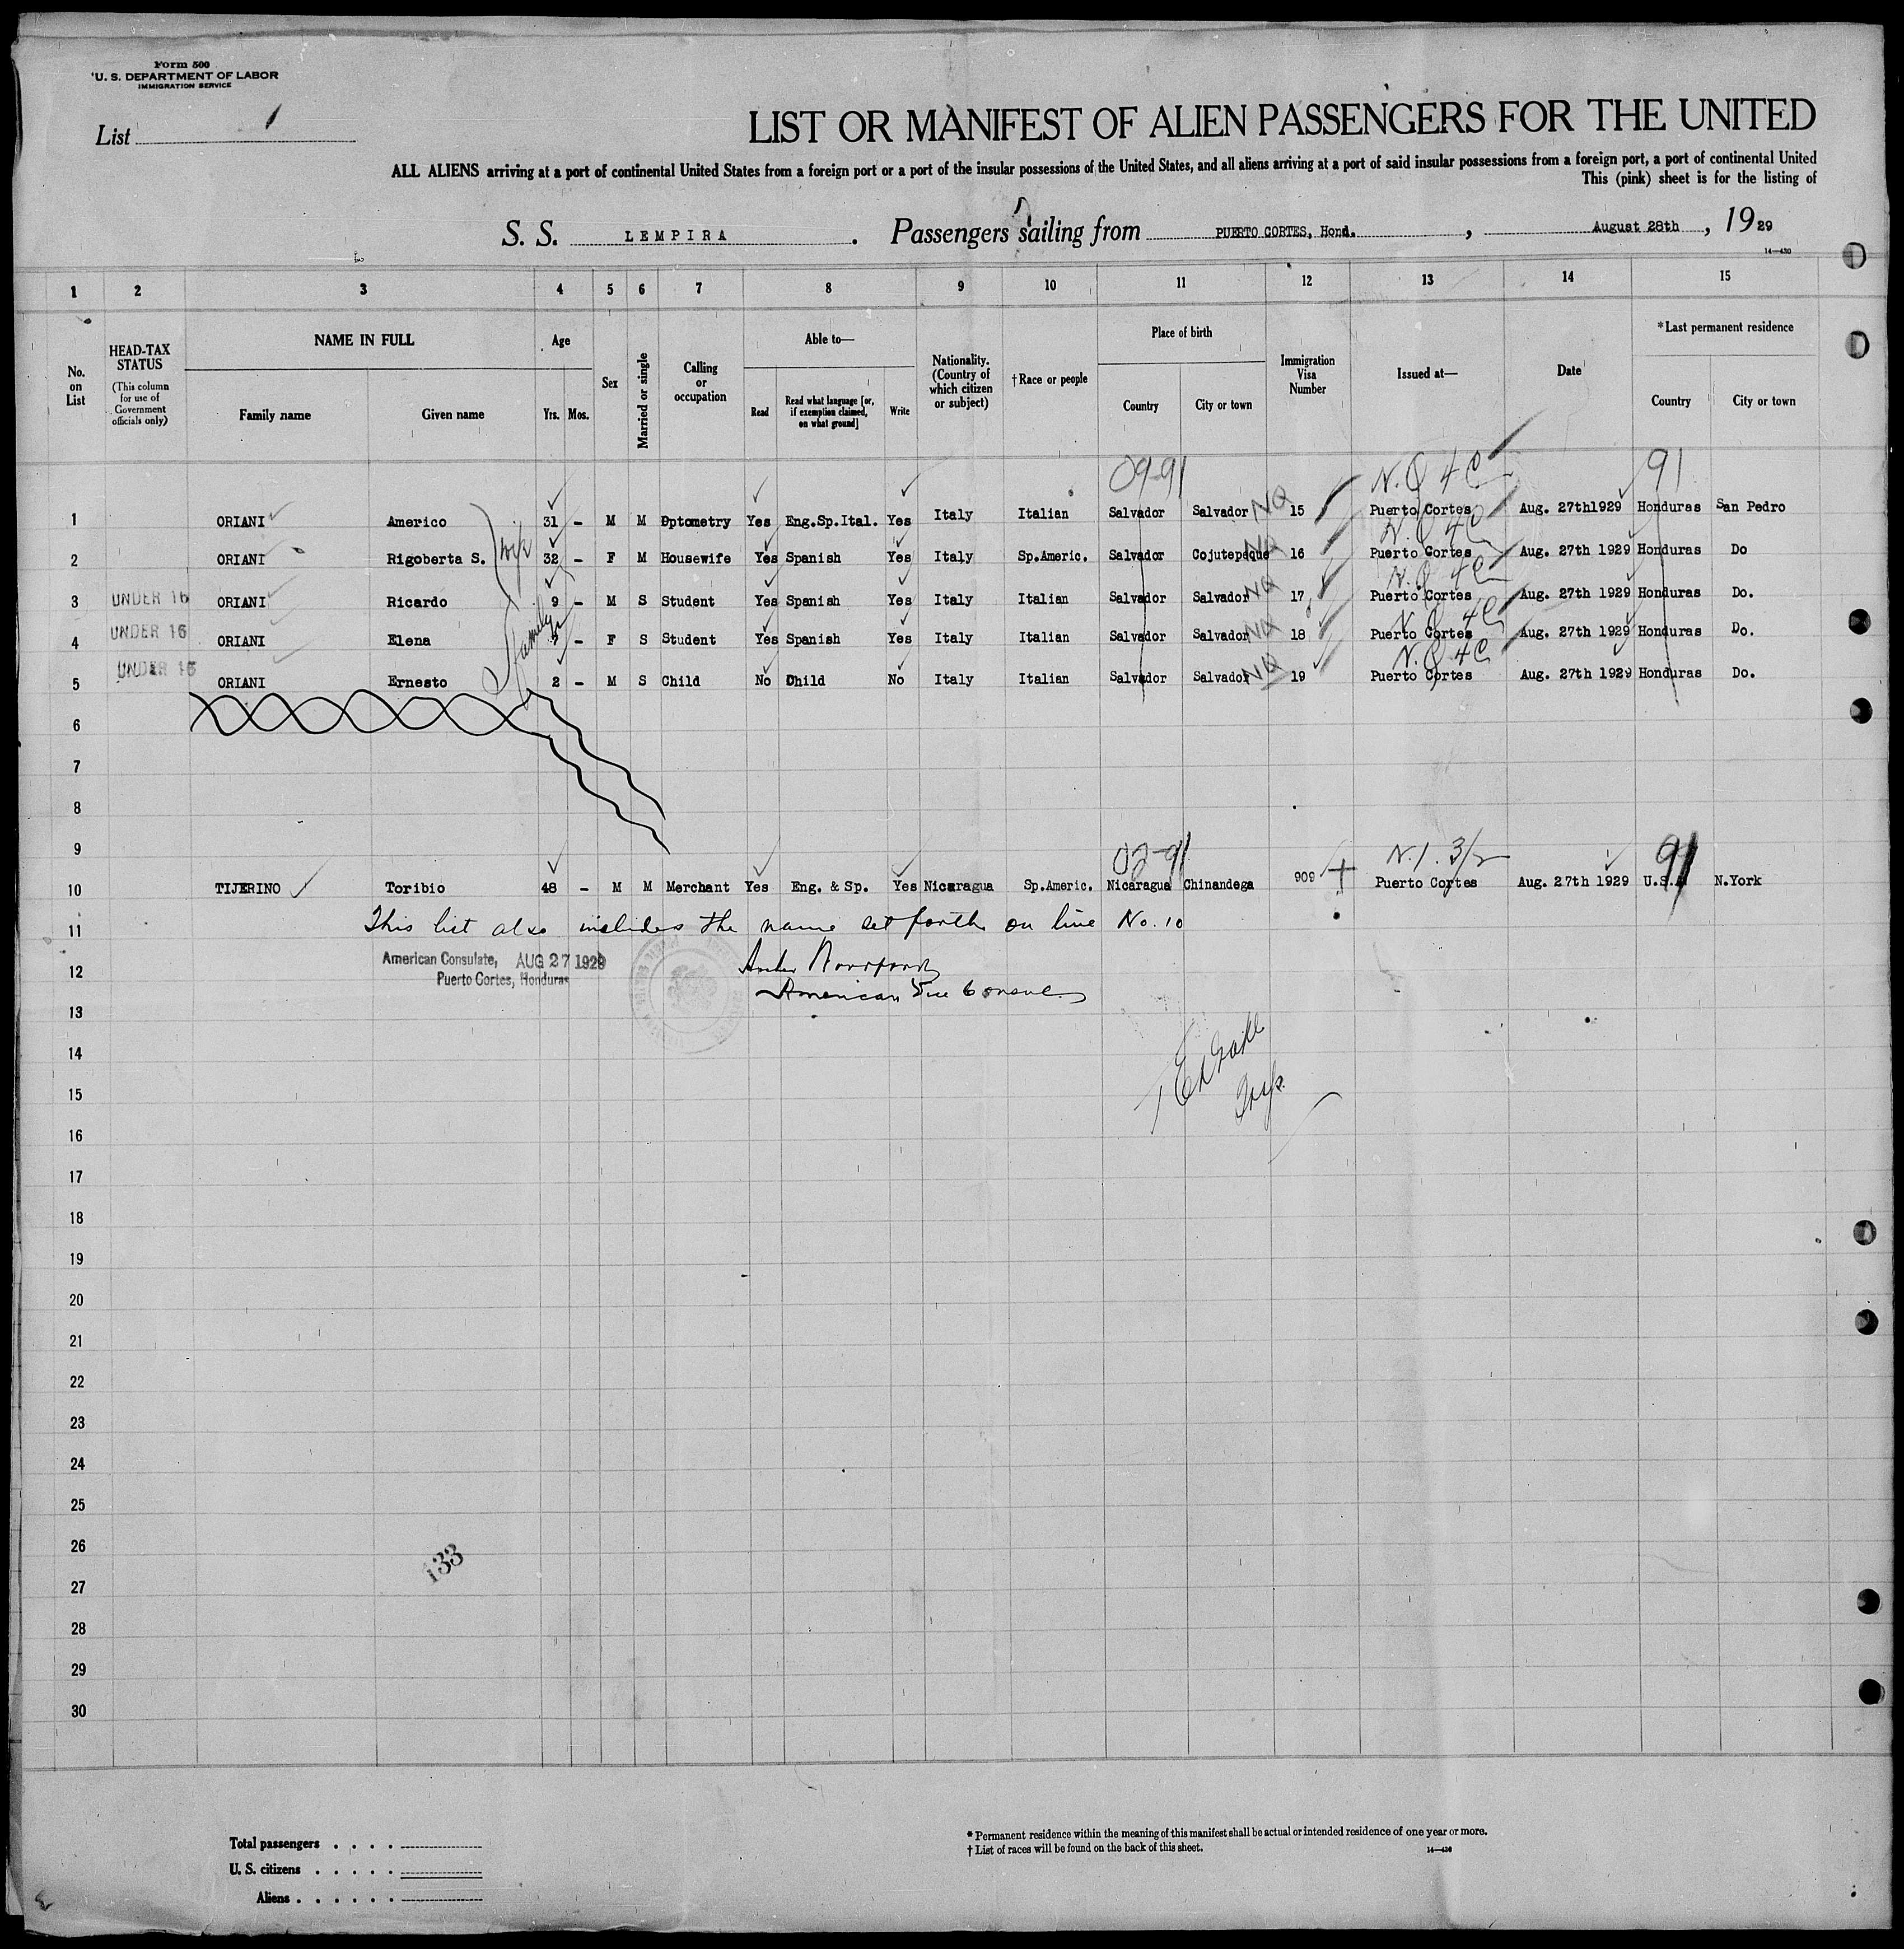 Form 500
U. S. DEPARTMENT OF LABOR
IMMIGRATION SERVICE
List 1
LIST OR MANIFEST OF ALIEN PASSENGERS FOR THE UNITED
ALL ALIENS arriving at a port of continental United States from a foreign port or a port of the insular possessions of the United States, and all aliens arriving at a port of said insular possessions from a foreign port, a port of continental United
This (pink) sheet is for the listing of
S. S. LEMPIRA. Passengers sailing from PUERTO CORTES, Hond., August 28th, 1929
14—430
1 2 3 4 5 6 7 8 9 10 11 12 13 14 15
No. on List
HEAD-TAX STATUS
(This column for use of Government officials only)
NAME IN FULL
Family name
Given name
Age
Yrs. Mos.
Sex
Married or single
Calling or occupation
Able to—
Read
Read what language [or, if exemption claimed, on what ground]
Write
Nationality. (Country of which citizen or subject)
† Race or people
Place of birth
Country
City or town
Immigration Visa Number
Issued at—
Date
*Last permanent residence
Country
City or town
09-91 N.Q 4C 91
1 ORIANI Americo 31 – M M Optometry Yes Eng.Sp.Ital. Yes Italy Italian Salvador Salvador NQ 15 Puerto Cortes Aug. 27th1929 Honduras San Pedro
wife N.Q 4C
2 ORIANI Rigoberta S. 32 – F M Housewife Yes Spanish Yes Italy Sp.Americ. Salvador Cojutepeque NQ 16 Puerto Cortes Aug. 27th 1929 Honduras Do
N.Q 4C
3 UNDER 16 ORIANI Ricardo 9 – M S Student Yes Spanish Yes Italy Italian Salvador Salvador NQ 17 Puerto Cortes Aug. 27th 1929 Honduras Do.
family N.Q 4C
4 UNDER 16 ORIANI Elena – F S Student Yes Spanish Yes Italy Italian Salvador Salvador NQ 18 Puerto Cortes Aug. 27th 1929 Honduras Do.
N.Q 4C
5 UNDER 16 ORIANI Ernesto 2 – M S Child No Child No Italy Italian Salvador Salvador NQ 19 Puerto Cortes Aug. 27th 1929 Honduras Do.
6
7
8
9
02-91 N.1. 3/2 91
10 TIJERINO Toribio 48 – M M Merchant Yes Eng. & Sp. Yes Nicaragua Sp.Americ. Nicaragua Chinandega 909 Puerto Cortes Aug. 27th 1929 U.S.A N.York
11 This list also includes the name set forth on line No. 10
12 American Consulate, AUG 27 1929
Puerto Cortes, Honduras
American Vice Consul
13
14
15 Insp.
16
17
18
19
20
21
22
23
24
25
26
133
27
28
29
30
Total passengers . . . .
U. S. citizens . . . . .
Aliens . . . . . .
* Permanent residence within the meaning of this manifest shall be actual or intended residence of one year or more.
† List of races will be found on the back of this sheet.
14—430